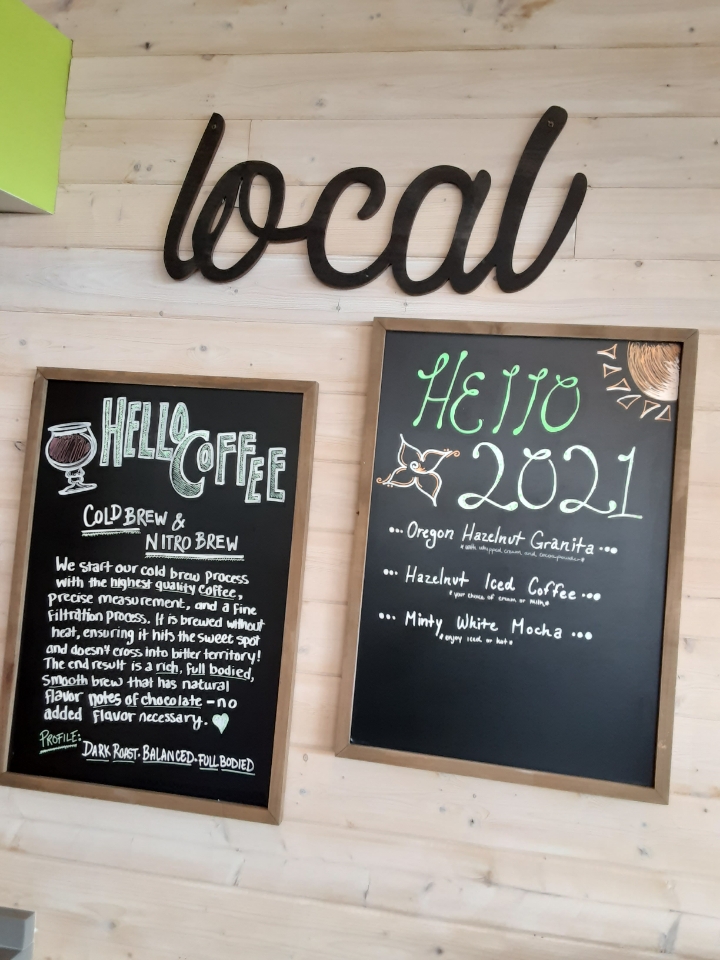 local
HELLO
COFFEE
COLD BREW &
NITRO BREW
We start our cold brew process
with the highest quality coffee,
precise measurement, and a fine
filtration process. It is brewed without
heat, ensuring it hits the sweet spot
and doesn't cross into bitter territory!
The end result is a rich, full bodied,
smooth brew that has natural
flavor notes of chocolate - no
added flavor necessary.
PROFILE:
DARK ROAST · BALANCED · FULL BODIED
HELLO
2021
••• Oregon Hazelnut Granita •••
*with whipped cream and cocoa powder*
••• Hazelnut Iced Coffee •••
*your choice of cream or milk*
••• Minty White Mocha •••
*enjoy iced or hot*